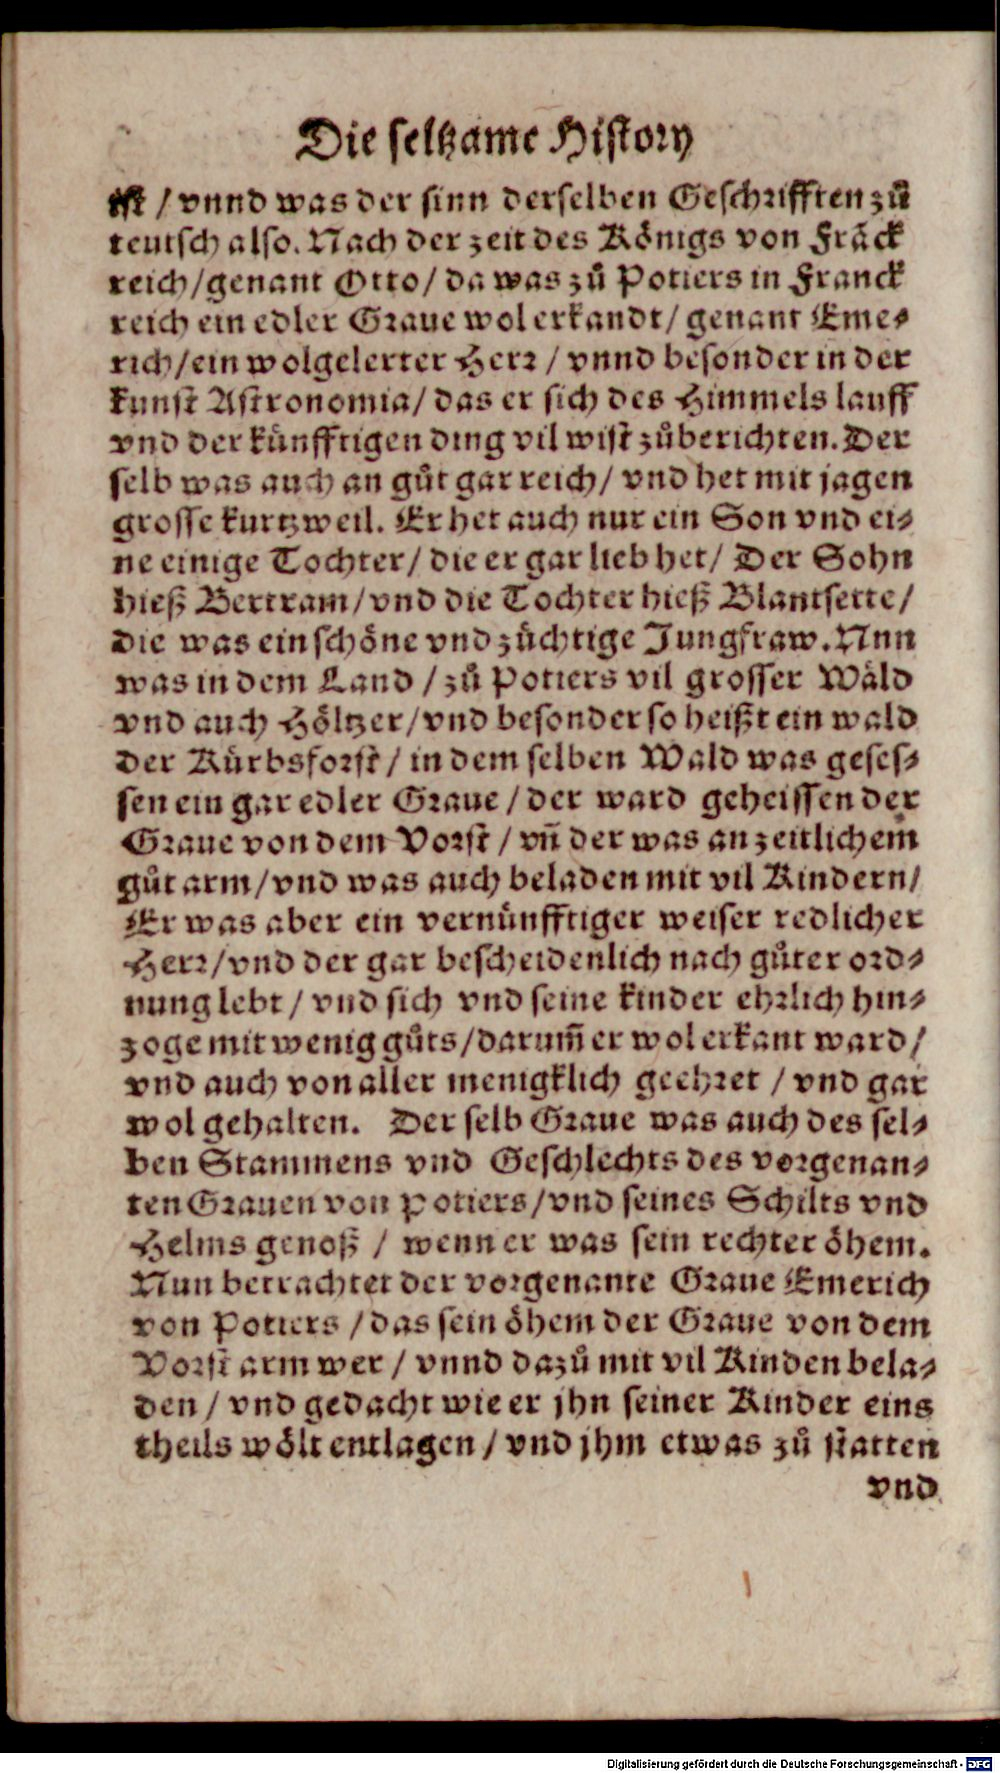 Die seltzame History
ist / vnnd was der sinn derselben Geschrifften zů
teutsch also. Nach der zeit des Königs von Fräck
reich/genant Otto/ da was zů Potiers in Franck
reich ein edler Graue wol erkandt/ genant Eme⸗
rich/ein wolgelerter Herr / vnnd besonder in der
kunst Astronomia/ das er sich des Himmels lauff
vnd der künfftigen ding vil wist zůberichten. Der
selb was auch an gůt gar reich/ vnd het mit jagen
grosse kurtzweil. Er het auch nur ein Son vnd ei⸗
ne einige Tochter/ die er gar lieb het/ Der Sohn
hieß Bertram/vnd die Tochter hieß Blantsette/
die was ein schöne vnd züchtige Jungfraw. Nnn
was in dem Land / zů Potiers vil grosser Wäld
vnd auch Höltzer/vnd besonder so heißt ein wald
der Kürbsforst/ in dem selben Wald was geses⸗
sen ein gar edler Graue / der ward geheissen der
Graue von dem Vorst / vñ der was an zeitlichem
gůt arm/vnd was auch beladen mit vil Kindern/
Er was aber ein vernünfftiger weiser redlicher
Herr/vnd der gar bescheidenlich nach gůter ord⸗
nung lebt / vnd sich vnd seine kinder ehrlich hin⸗
zoge mit wenig gůts/darum̃ er wol erkant ward/
vnd auch von aller menigklich geehret / vnd gar
wol gehalten. Der selb Graue was auch des sel⸗
ben Stammens vnd Geschlechts des vorgenan⸗
ten Grauen von Potiers/vnd seines Schilts vnd
Helms genoß / wenn er was sein rechter öhem.
Nun betrachtet der vorgenante Graue Emerich
von Potiers / das sein öhem der Graue von dem
Vorst arm wer / vnnd dazů mit vil Kinden bela⸗
den / vnd gedacht wie er jhn seiner Kinder eins
theils wölt entlagen / vnd jhm etwas zů statten
vnd
Digitalisierung gefördert durch die Deutsche Forschungsgemeinschaft - DFG